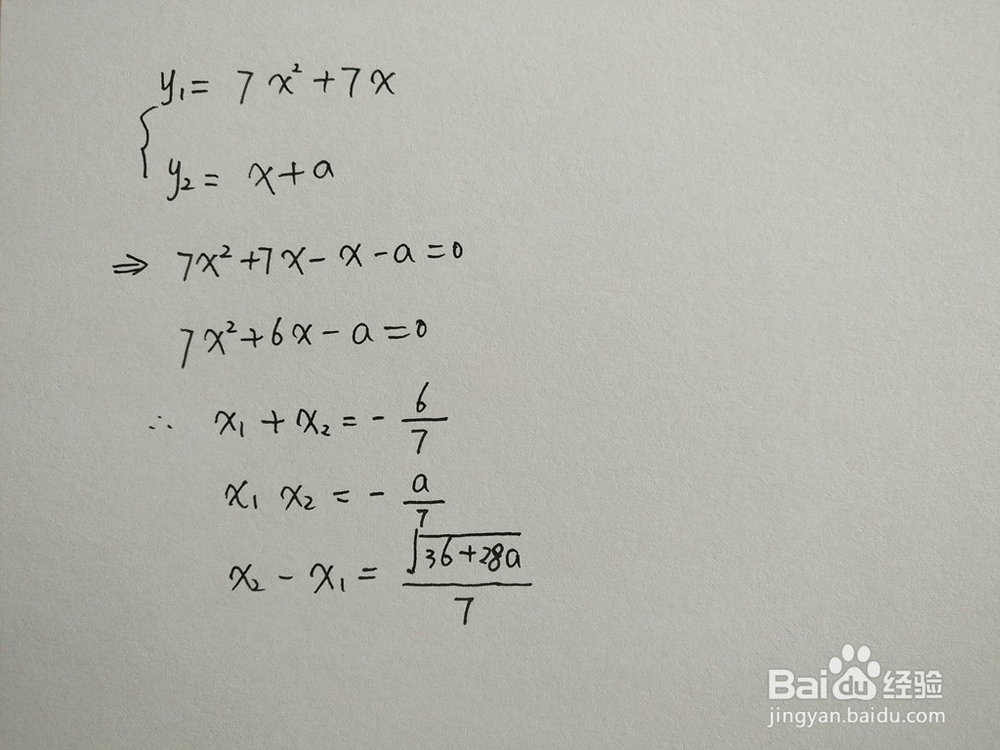 y₁ = 7x² + 7x
y₂ = x + a
⇒ 7x² + 7x - x - a = 0
7x² + 6x - a = 0
∴ x₁ + x₂ = - 6/7
x₁ x₂ = - a/7
x₂ - x₁ = √(36+28a)/7
Bai du 经验
jingyan.baidu.com